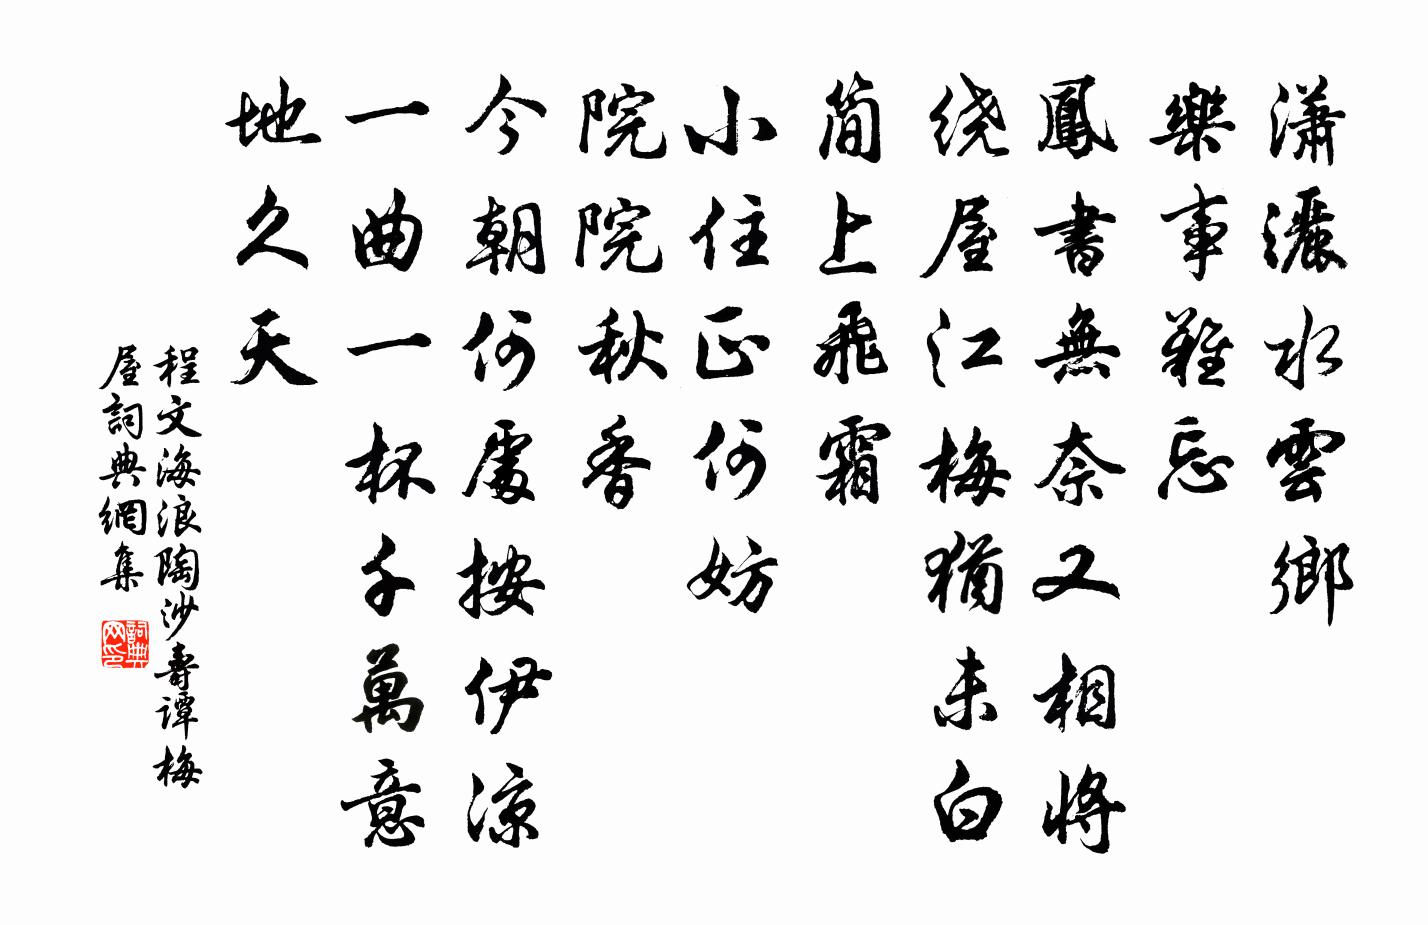 潇灑水雲鄉
樂事難忘
鳳書無奈又相將
绕屋江梅猶未白
简上飛霜
小住正何妨
院院秋香
今朝何處按伊凉
一曲一杯千萬意
地久天
程文海浪陶沙壽谭梅
屋詞典網集
詞典
网印